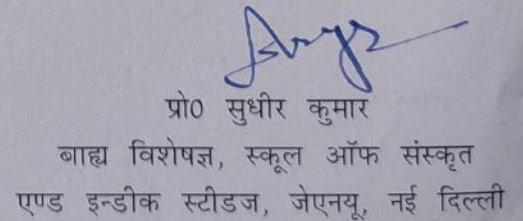 प्रो0 सुधीर कुमार
बाह्य विशेषज्ञ, स्कूल ऑफ संस्कृत
एण्ड इन्डीक स्टीडज, जेएनयू, नई दिल्ली